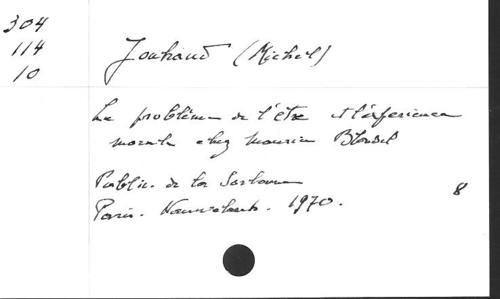 304
114
10
Jouhaud (Michel)
Le problème de l'être et l'expérience
morale chez Maurice Blondel
Public. de la Sorbonne
Paris. Nauwelaerts. 1970.
8